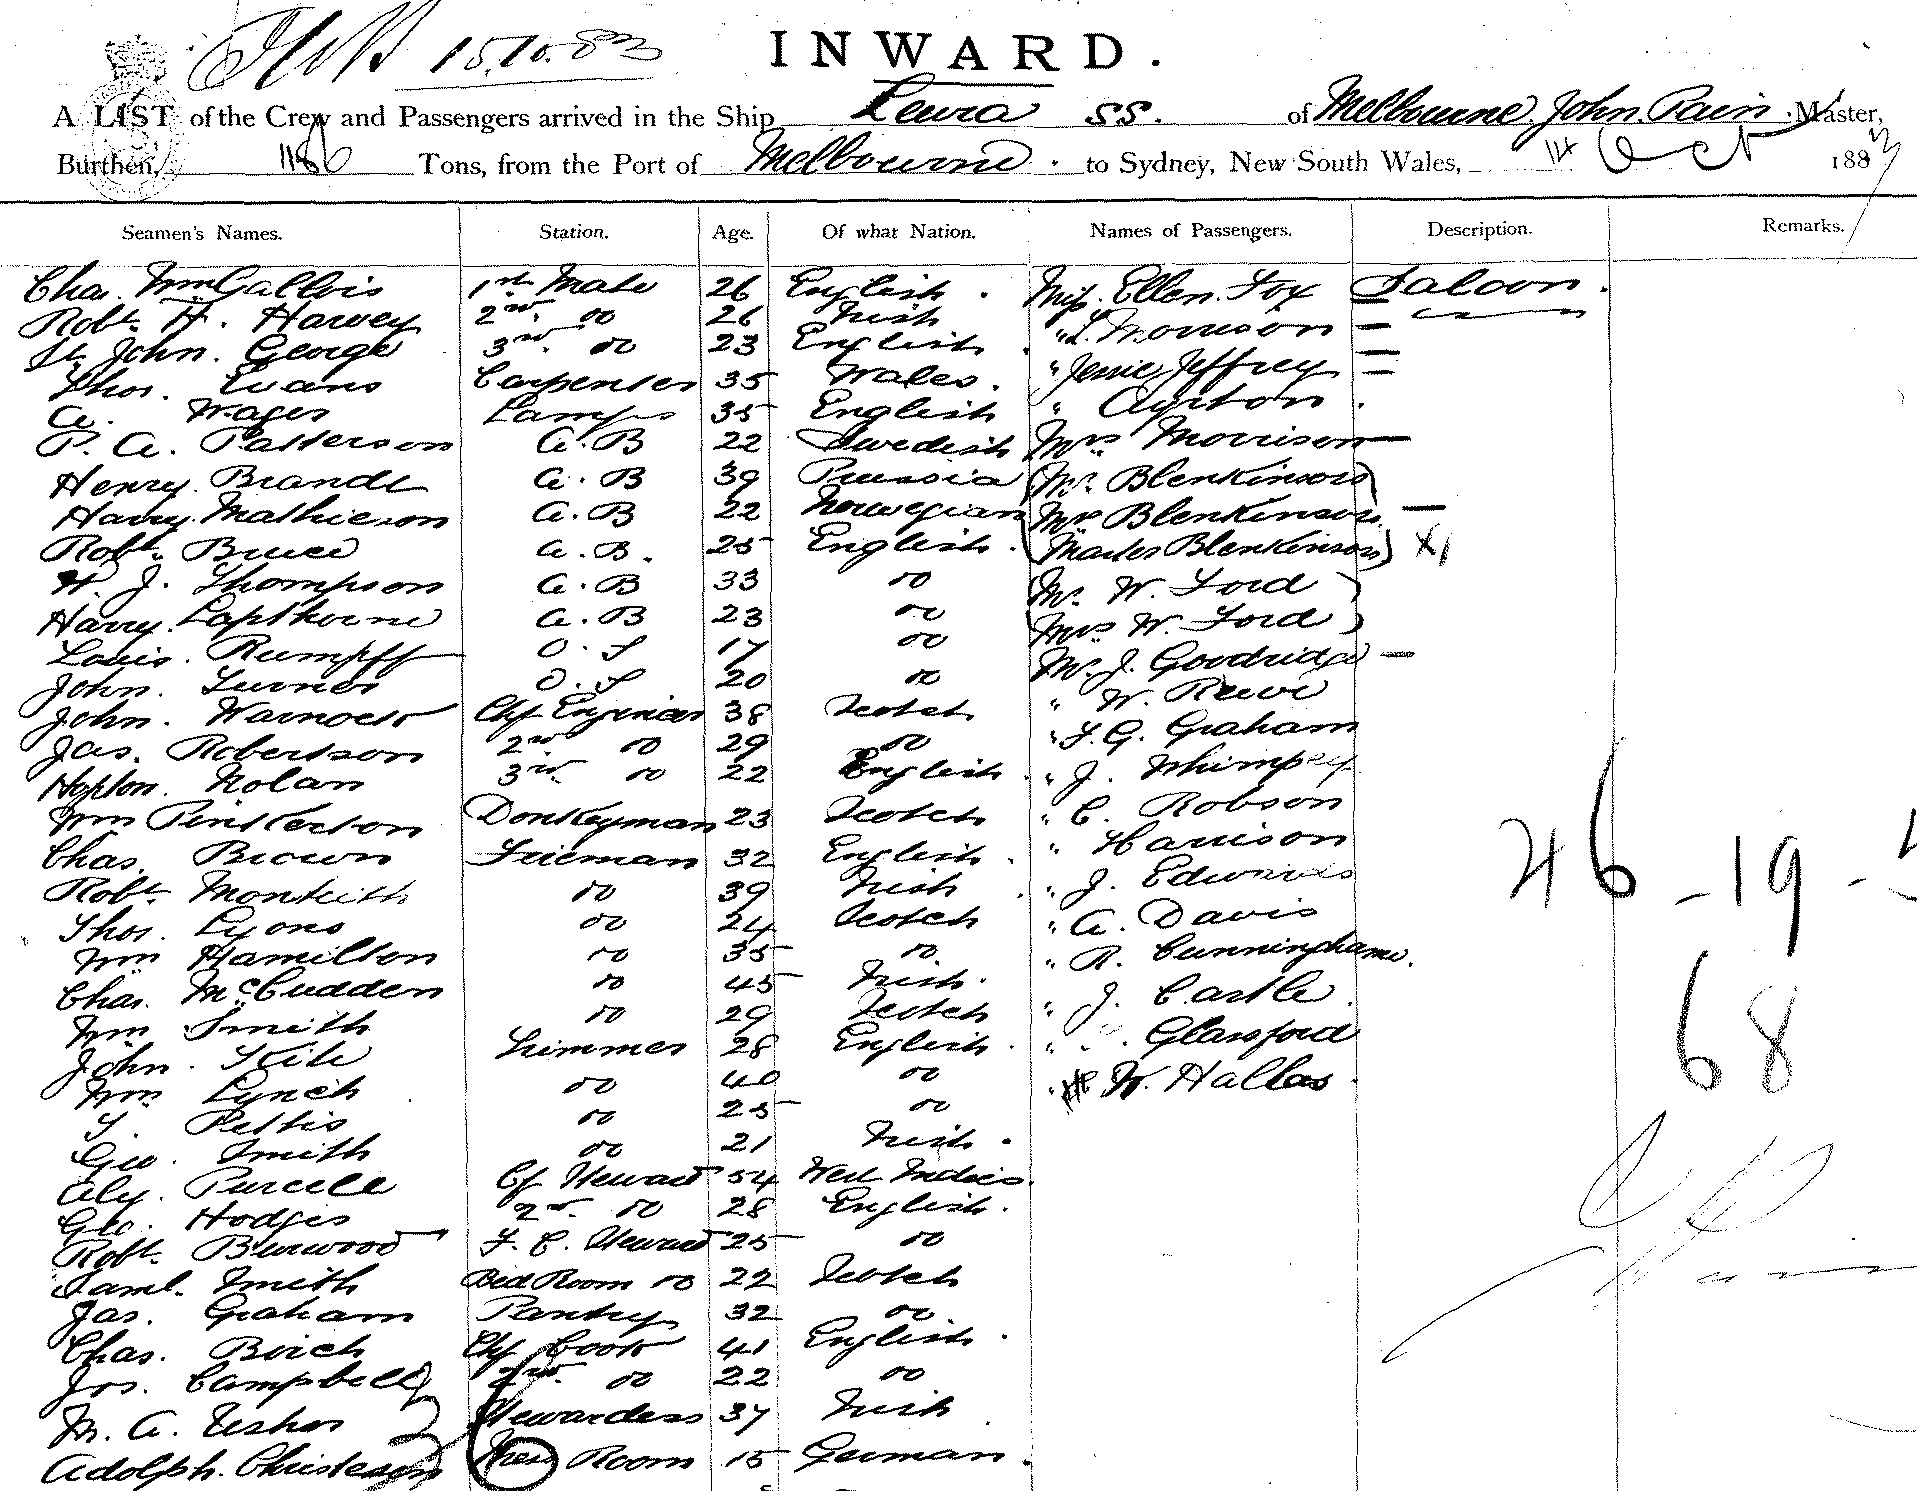 15.10.83
INWARD.
A LIST of the Crew and Passengers arrived in the Ship Leura SS. of Melbourne. John. Pain. Master,
Burthen, 1186 Tons, from the Port of Melbourne. to Sydney, New South Wales, 14 Oct 1883
Seamen's Names. Station. Age. Of what Nation. Names of Passengers. Description. Remarks.
Chas. Wm Gallois 1st Mate 26 English. Miss. Ellen. Fox Saloon.
Robt. H. Harvey 2nd. do 26 Irish " L. Morrison —
St. John. George 3rd. do 23 English " Jessie Jeffrey —
Thos. Evans Carpenter 35 Wales. " Ayrton.
A. Wages Lamps 35 English Mrs Morrison —
P. A. Patterson A. B 22 Swedish Mr. Blenkinson
Henry. Brandt A. B 39 Prussia Mrs Blenkinson —
Harry. Mathieson A. B 22 Norwegian Master Blenkinson
Robt. Bruce A. B. 25 English. Mr. W. Ford
H. J. Thompson A. B 33 do Mrs W. Ford
Harry. Lapthorne A. B 23 do Mr. J. Goodridge —
Louis. Rumpff O. S 17 do " W. Reeve
John. Turner O. S 20 do " F. G. Graham
John. Warnock Chf Engineer 38 Scotch " J. Whimpey
Jas. Robertson 2nd do 29 do " C. Robson
Hopton. Nolan 3rd. do 22 English. " Harrison
Wm Pinkerton Donkeyman 23 Scotch " J. Edwards
Chas. Brown Fireman 32 English. " A. Davis
Robt. Monteith do 39 Irish " R. Cunninghame.
Thos. Lyons do 24 Scotch " J. Castle.
Wm Hamilton do 35 do " Glassford
Chas. McCudden do 45 Irish. " W. Hallas
Wm Smith do 29 Scotch
John. Kile Trimmer 28 English.
Wm. Lynch do 40 do
Pettis do 25 do
Geo. Smith do 21 Irish.
Aly. Purcell Cf Steward 54 West Indies.
Geo. Hodges 2nd. do 28 English.
Robt. Burwood F. C. Steward 25 do
Saml. Smith Bed Room do 22 Scotch
Jas. Graham Pantry 32 do
Chas. Birch Chf Cook 41 English.
Jos. Campbell 2nd. do 22 do
M. A. Usher Stewardess 37 Irish
Adolph. Christeson Mess Room 15 German.
46 - 19 -
68